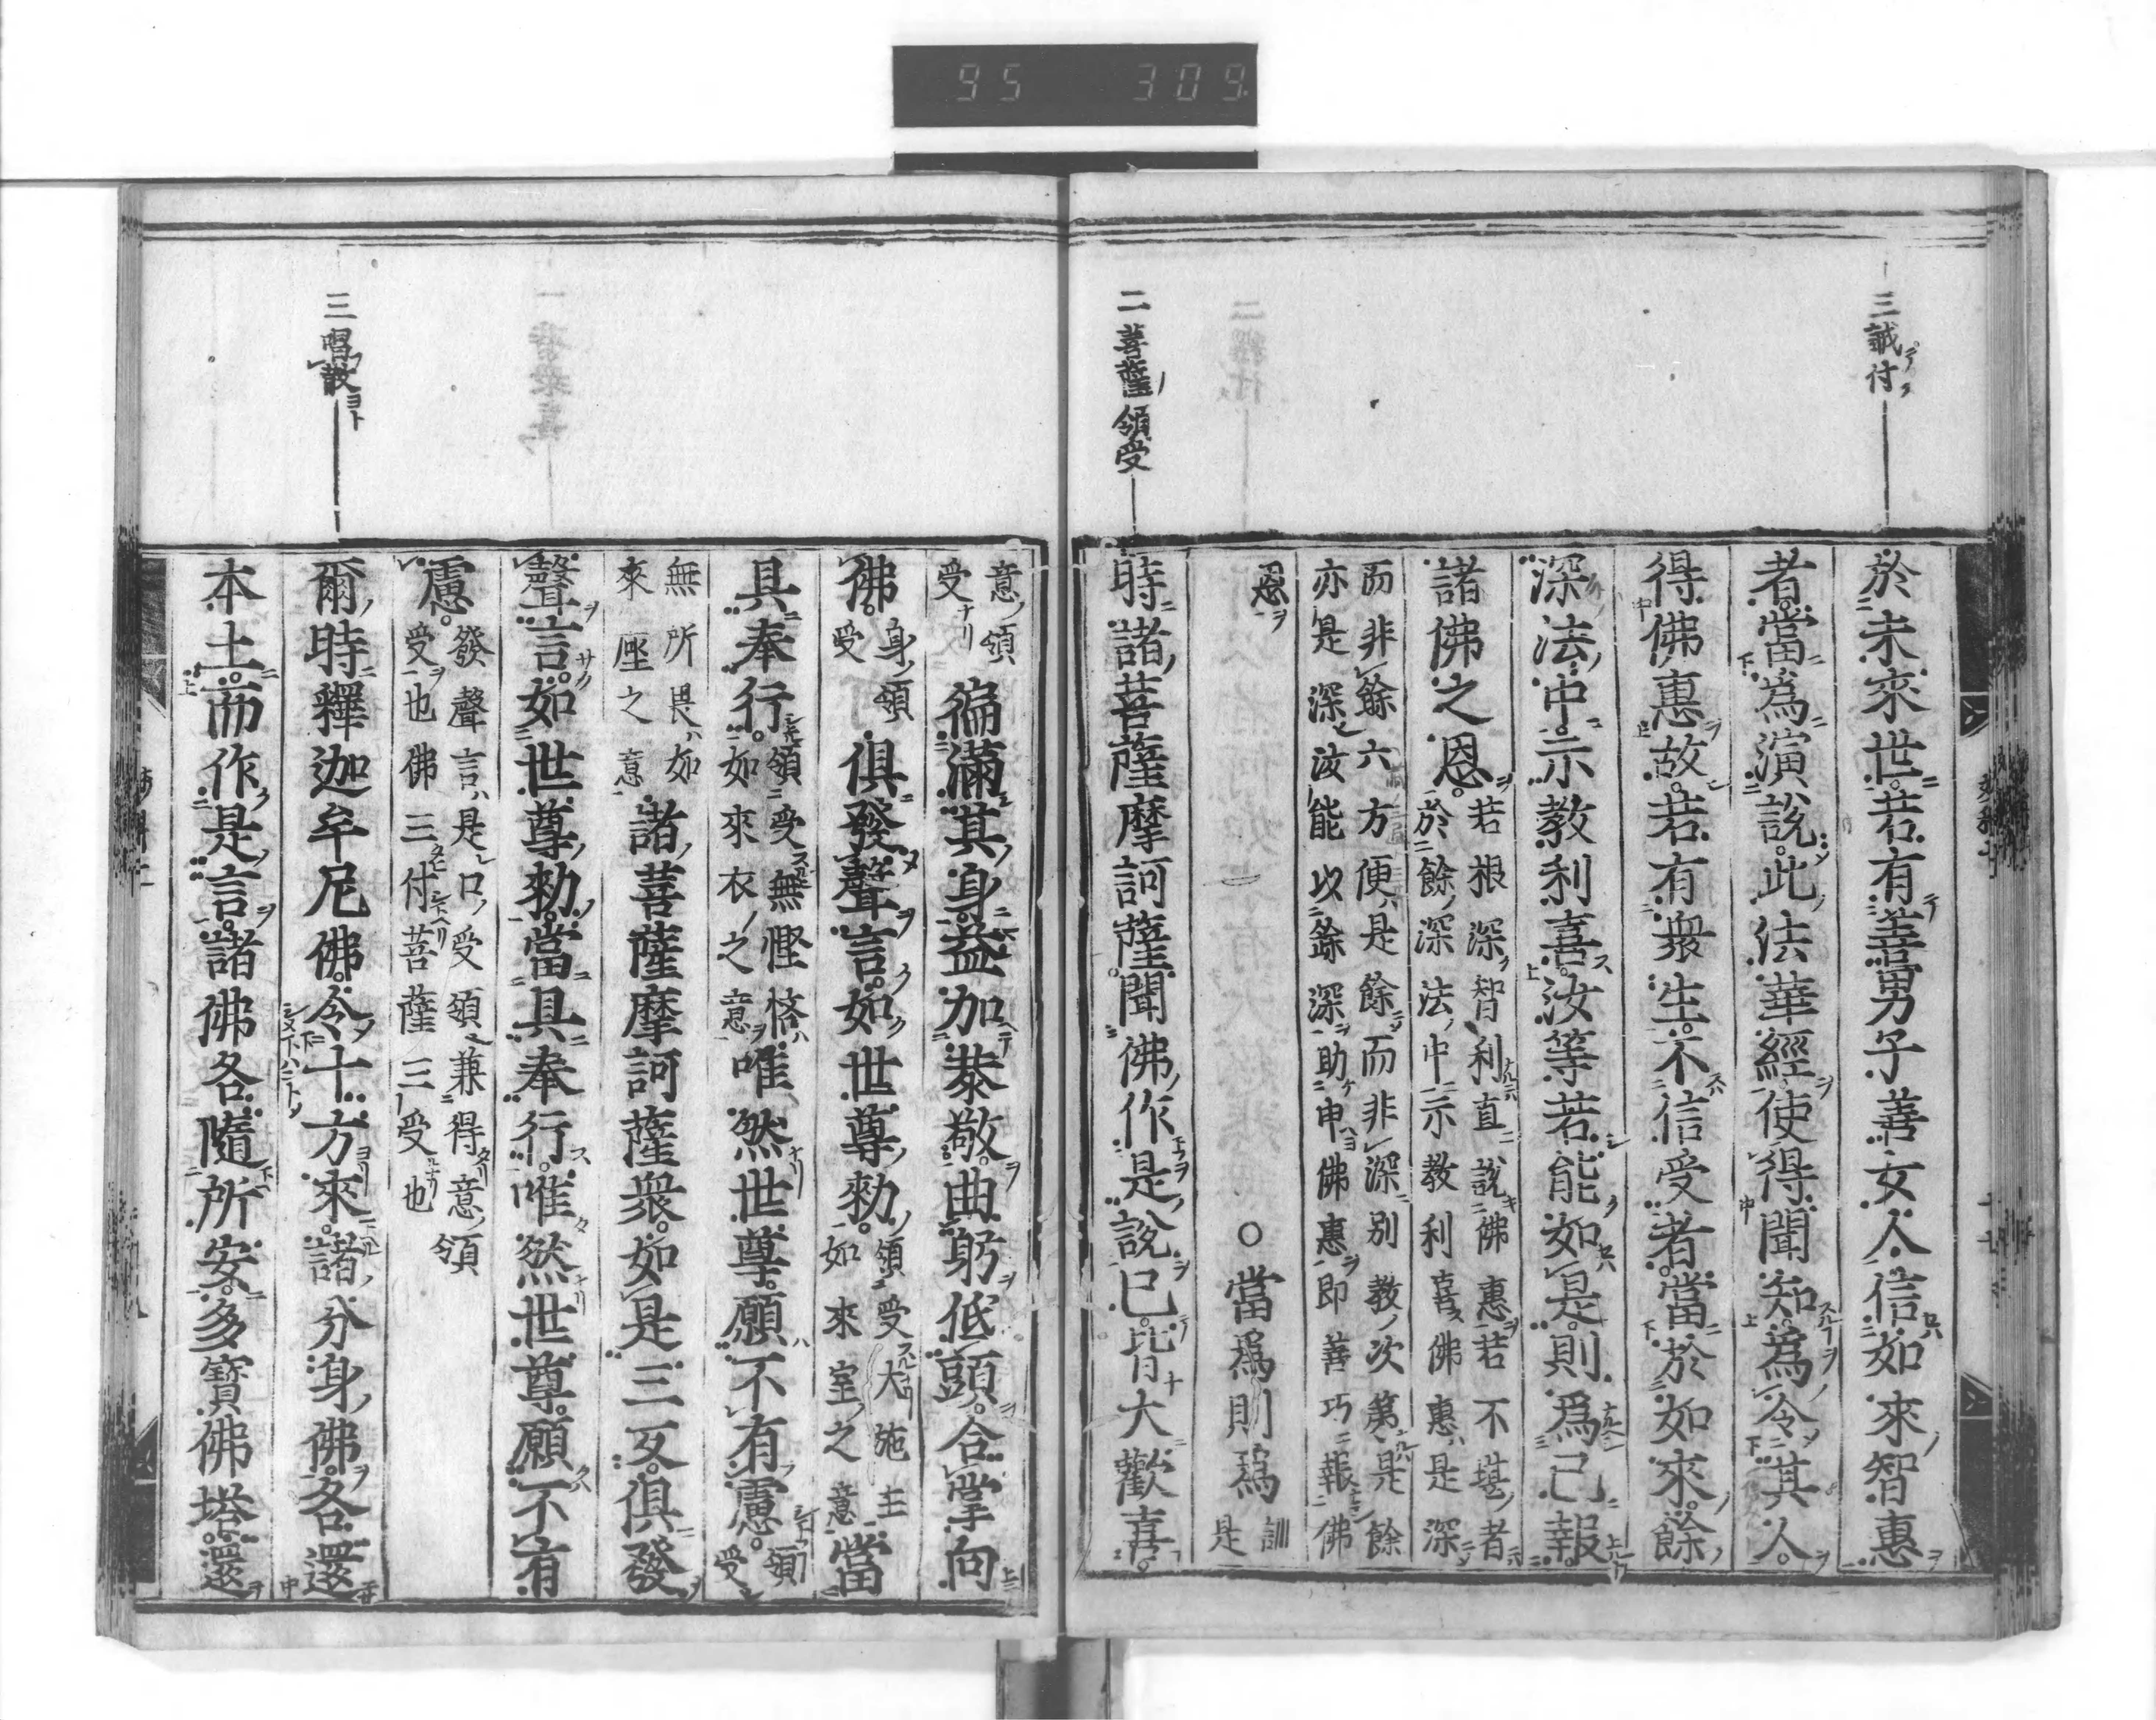 95 309
三誡付
於未來世若有善男子善女人信如來智惠
者當為演說此法華經使得聞知為令其人
得佛惠故若有衆生不信受者當於如來餘
深法中示教利喜汝等若能如是則為已報
諸佛之恩若根深智利直說佛惠若不堪者
於餘深法中示教利喜佛惠是深
而非餘六方便是餘而非深別教次第是餘
亦是深汝能以餘深助申佛惠即善巧報佛
恩
○當為則為訓
是
二菩薩領受
時諸菩薩摩訶薩聞佛作是說已皆大歡喜
意領
受
徧滿其身益加恭敬曲躬低頭合掌向
佛身領
受
俱發聲言如世尊勑領受大施主
如來室之意
當
具奉行領受無慳悋
如來衣之意
唯然世尊願不有慮領
受
無所畏如
來座之意
諸菩薩摩訶薩衆如是三反俱發
聲言如世尊勑當具奉行唯然世尊願不有
慮發聲言是口受領兼得意領
受也佛三付菩薩三受也
三唱散
爾時釋迦牟尼佛令十方來諸分身佛各還
本土而作是言諸佛各隨所安多寶佛塔還